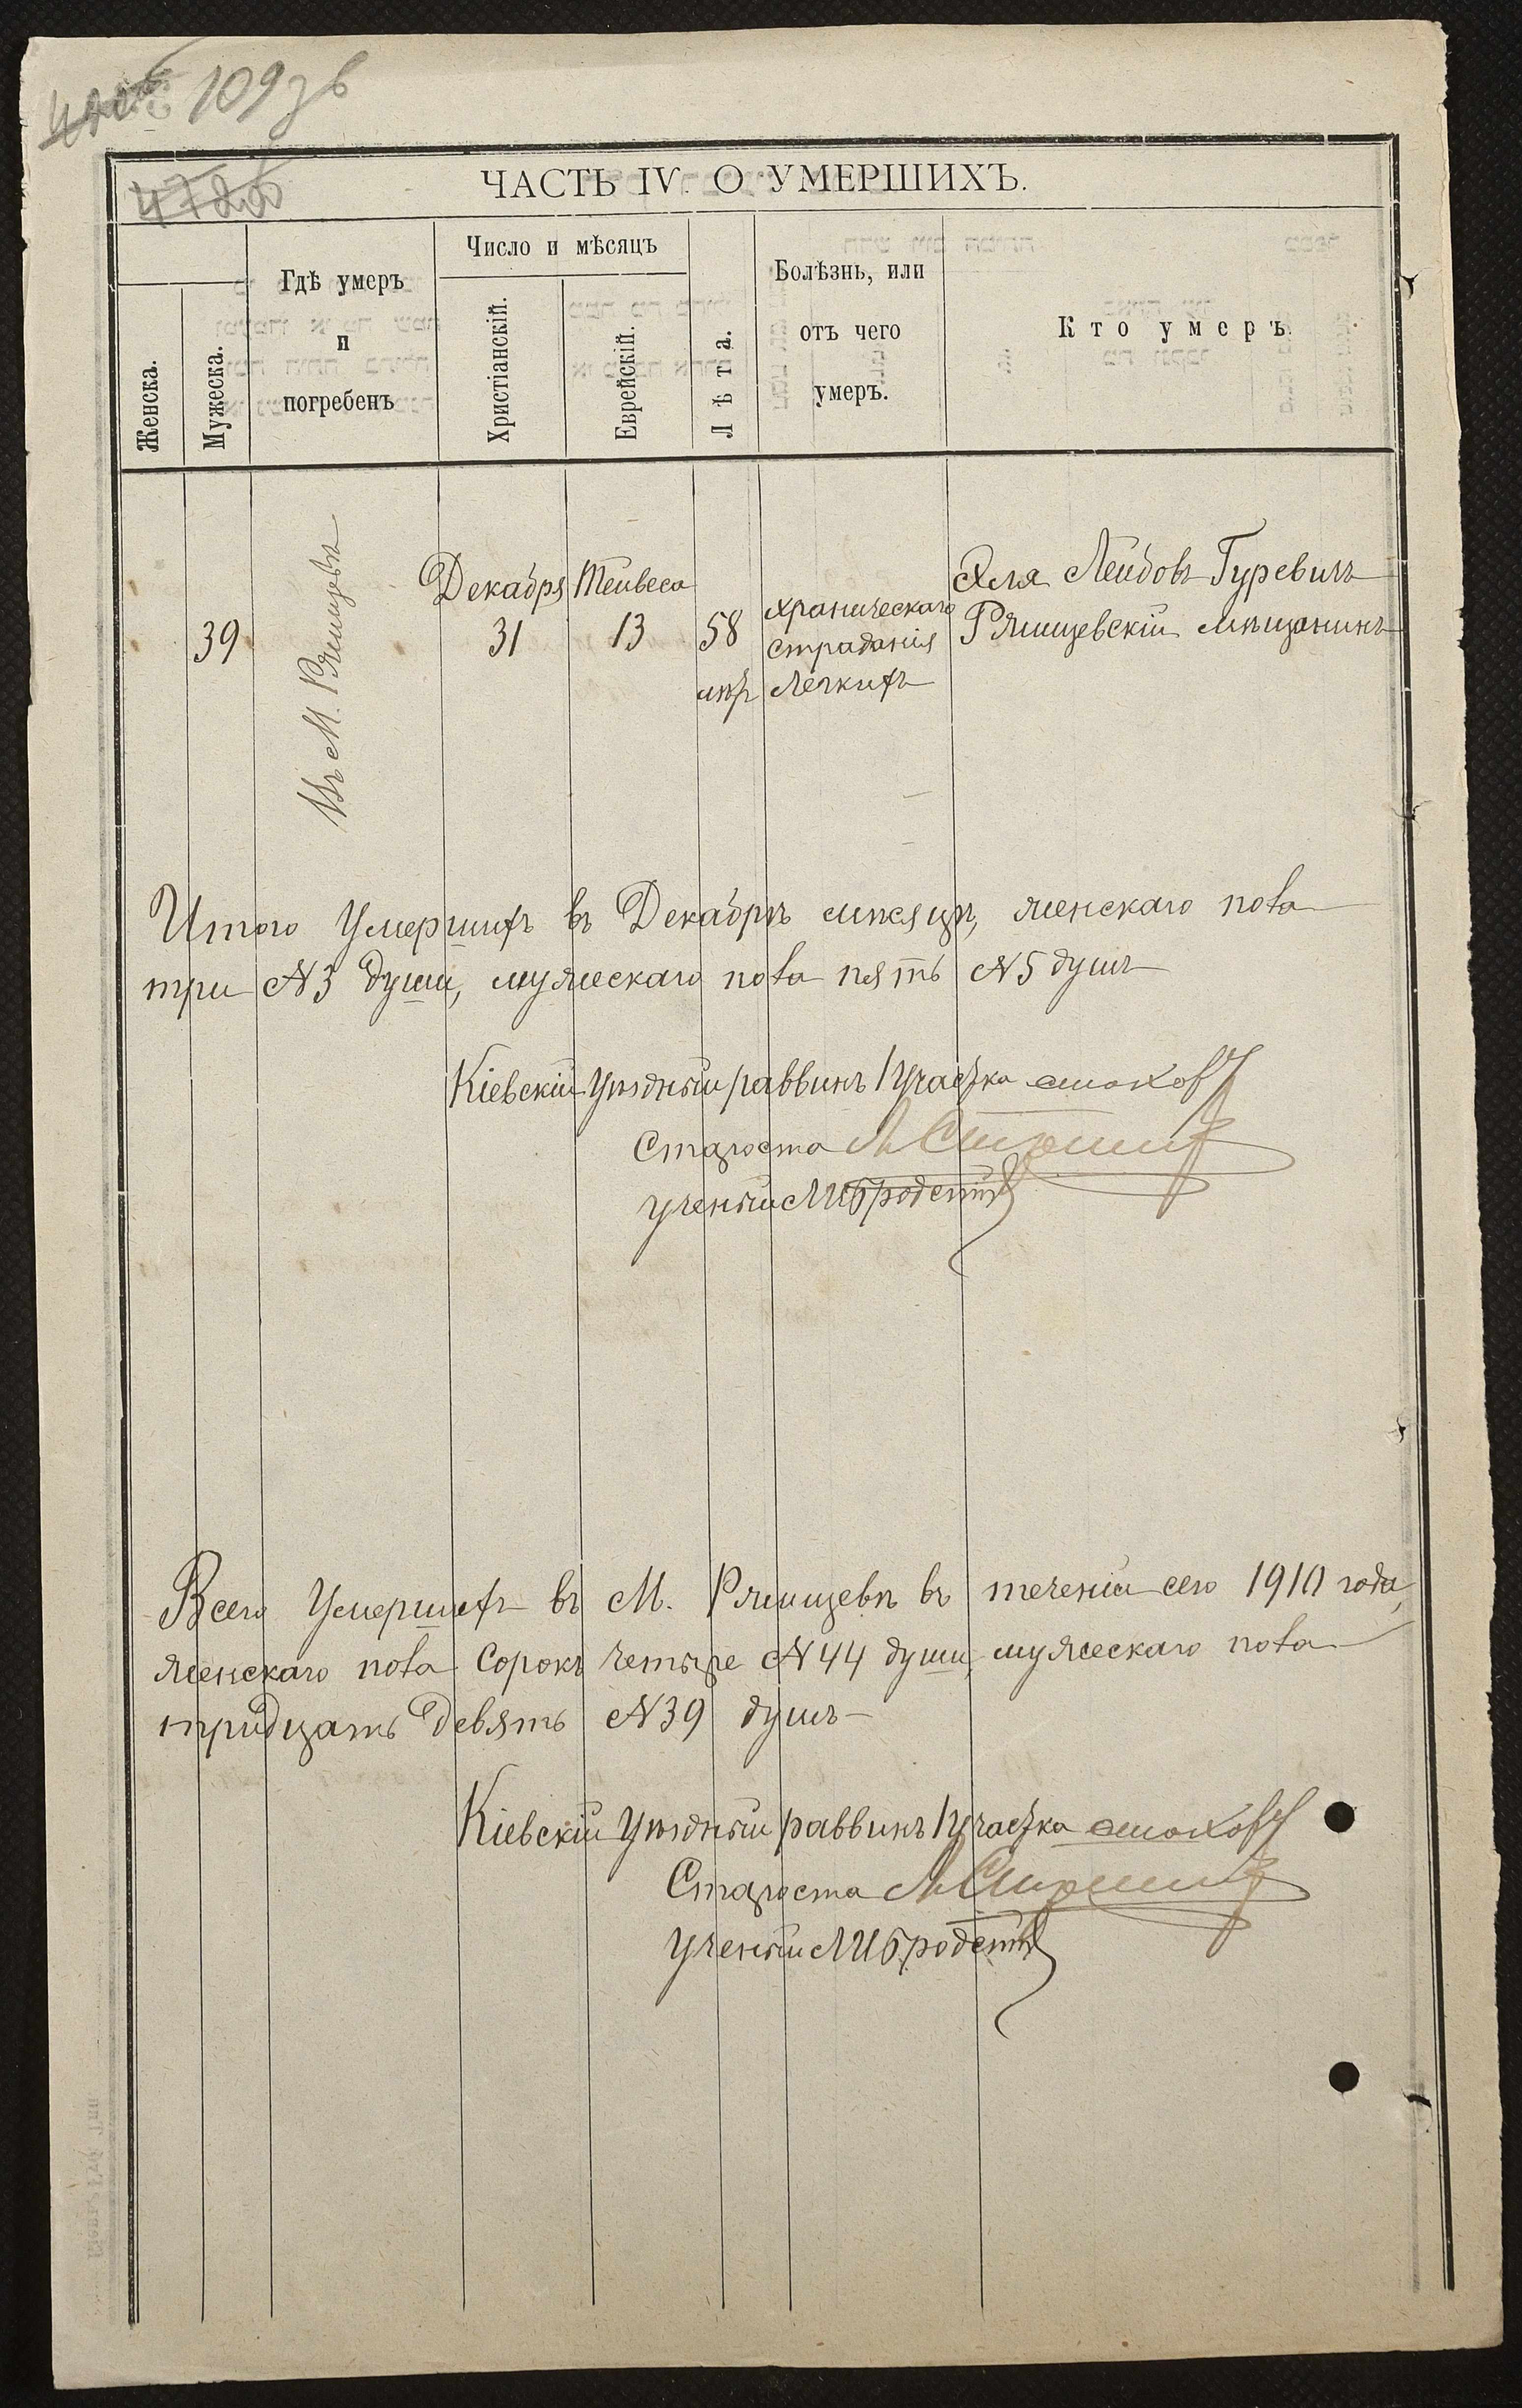 109 зв
ЧАСТЬ IV. О УМЕРШИХЪ.
Женска.
Мужеска.
Гдѣ умеръ
и
погребенъ
Число и мѣсяцъ
Христіанскій.
Еврейскій.
Лѣта.
Болѣзнь, или
отъ чего
умеръ.
Кто умеръ
39
Въ М. Ржищевѣ
Декабря
31
Тейвеса
13
58
лѣтъ
хроническаго
страданія
Легкихъ
Эля Лейбовъ Гуревичъ
Ржищевскій мѣщанинъ
Итого Умершихъ въ Декабрѣ мѣсяцѣ, женскаго пола
три №3 души, мужескаго пола пять №5 душъ
Кіевскій Уѣздный раввинъ 1 участка
Староста
Ученый
Всего Умершихъ въ М. Ржищевѣ въ теченіи сего 1910 года,
женскаго пола сорокъ четыре №44 души, мужескаго пола
тридцать девять №39 душъ
Кіевскій Уѣздный раввинъ 1 участка
Староста
Ученый